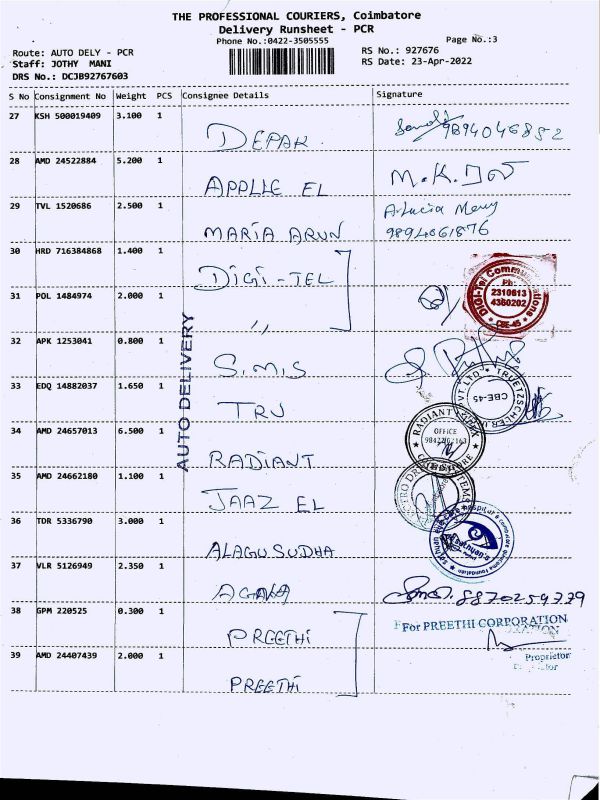 THE PROFESSIONAL COURIERS, Coimbatore
Delivery Runsheet - PCR
Phone No.:0422-3505555
Page No.:3
Route: AUTO DELY - PCR
RS No.: 927676
Staff: JOTHY MANI
RS Date: 23-Apr-2022
DRS No.: DCJB92767603
S No Consignment No Weight PCS Consignee Details Signature
27 KSH 500019409 3.100 1 DEPAK 9894046852
28 AMD 24522884 5.200 1 APPLLE EL M.K.
29 TVL 1520686 2.500 1 MARIA ARUN A.Lucia Mery
9894061876
30 HRD 716384868 1.400 1 DIGI-TEL
DIGI-Tel Communications
Ph:
2310613
4360202
CBE-45
31 POL 1484974 2.000 1 "
AUTO DELIVERY
32 APK 1253041 0.800 1 S.MIS
33 EDQ 14882037 1.650 1 TRU
TRUETZSCHLER PVT. LTD
CBE-45
34 AMD 24657013 6.500 1 RADIANT
RADIANT
OFFICE
35 AMD 24662180 1.100 1 JAAZ EL
36 TDR 5336790 3.000 1 ALAGU SUDHA
sathyan eye care hospital & coimbatore glaucoma foundation
Sathyan's
37 VLR 5126949 2.350 1 8870259779
38 GPM 220525 0.300 1 PREETHI
For PREETHI CORPORATION
39 AMD 24407439 2.000 1 PREETHI
Proprietor